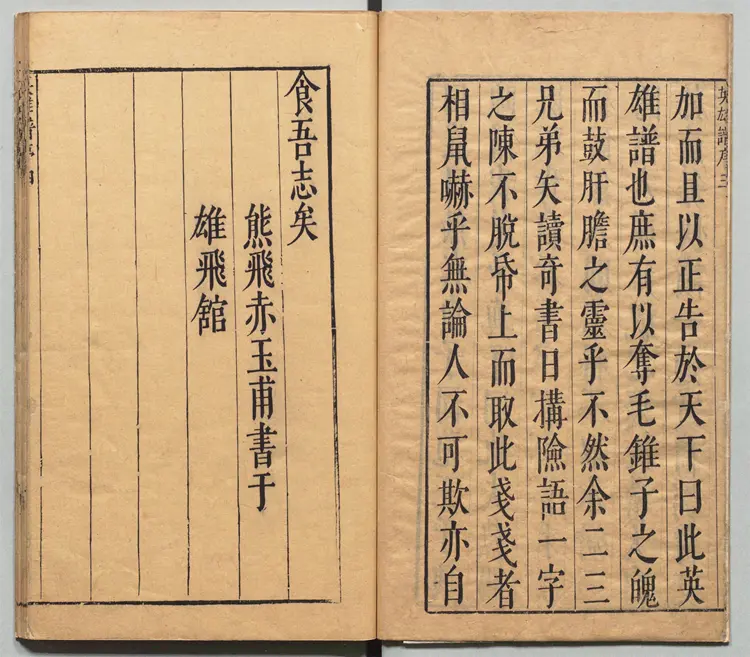 英雄譜序三
加而且以正告於天下曰此英
雄譜也庶有以奪毛錐子之魄
而鼓肝膽之靈乎不然余二三
兄弟矢讀奇書日搆險語一字
之陳不脫帋上而取此戔戔者
相鼠嚇乎無論人不可欺亦自
食吾志矣
熊飛赤玉甫書于
雄飛舘